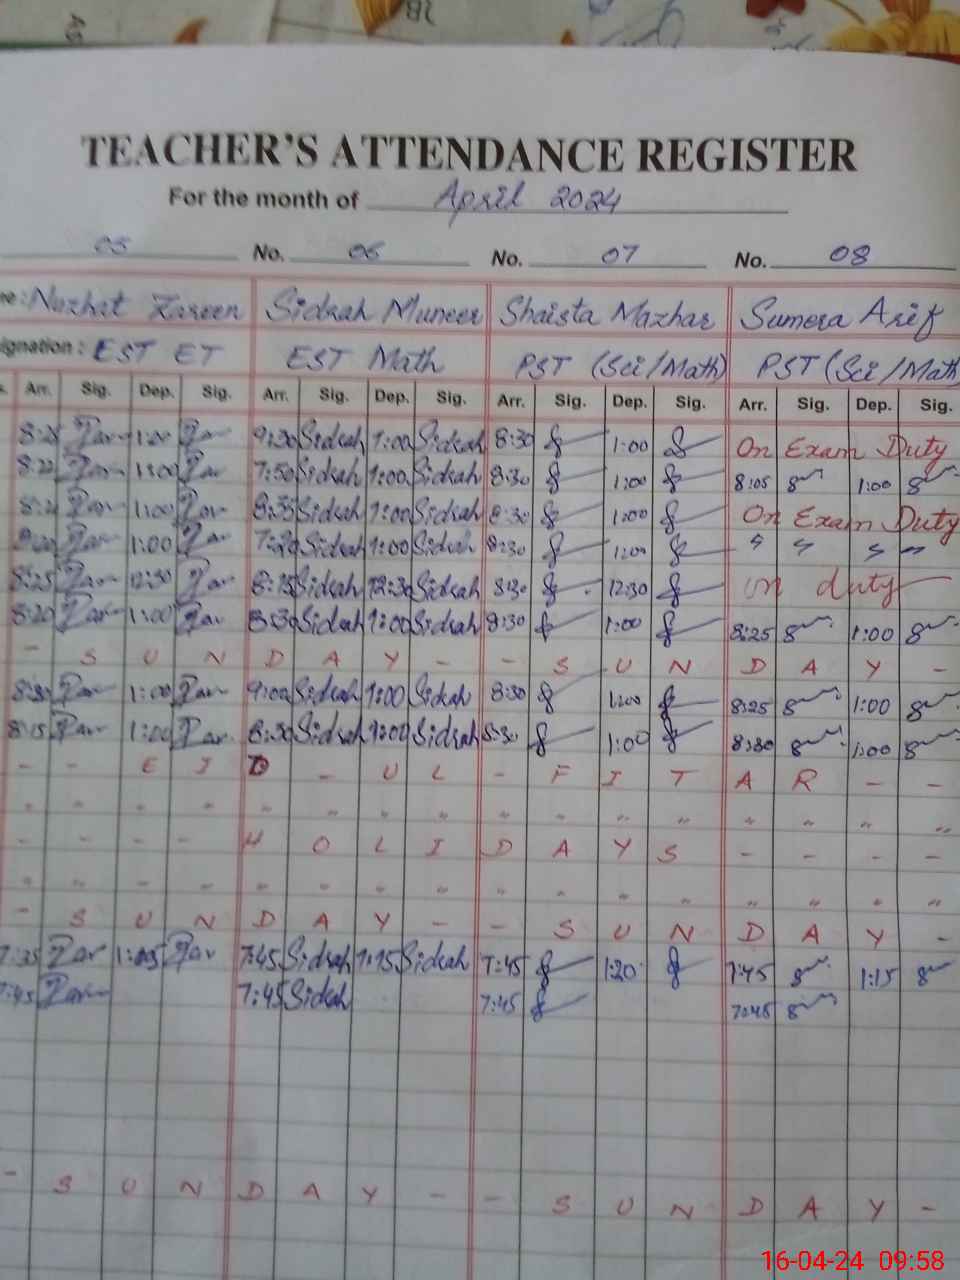 TEACHER'S ATTENDANCE REGISTER
For the month of April 2024
05 No. 06 No. 07 No. 08
Nuzhat Zareen Sidrah Muneer Shaista Mazhar Sumera Arif
signation : EST ET EST Math PST (Sci/Math) PST (Sci/Math
Arr. Sig. Dep. Sig. Arr. Sig. Dep. Sig. Arr. Sig. Dep. Sig. Arr. Sig. Dep. Sig.
Zar Zar Sidrah 1:00 Sidrah 8:30 1:00 On Exam Duty
8:22 Zar 1:00 Zar 7:50 Sidrah 1:00 Sidrah 8:30 1:00 8:05 1:00
Zar 1:00 Zar Sidrah 1:00 Sidrah 8:30 1:00 On Exam Duty
Zar 1:00 Zar Sidrah 1:00 Sidrah 8:30 1:00 " " " "
8:25 Zar 12:30 Zar 8:15 Sidrah 12:30 Sidrah 830 12:30 on duty
8:20 Zar 1:00 Zar 8:30 Sidrah 1:00 Sidrah 8:30 1:00 8:25 1:00
- S U N D A Y - - S U N D A Y -
8:30 Zar 1:00 Zar 9:00 Sidrah 1:00 Sidrah 8:30 1:00 8:25 1:00
8:15 Zar 1:00 Zar 8:30 Sidrah 1:00 Sidrah 8:30 1:00 8:30 1:00
- - E I D - U L - F I T A R - -
" " " " " " " " " " " " " " " "
- - - - H O L I D A Y S - - - -
" " " " " " " " " " " " " " " "
- S U N D A Y - - S U N D A Y -
7:35 Zar 1:05 Zar 7:45 Sidrah 1:15 Sidrah 7:45 1:20 7:45 1:15
7:45 Zar 7:45 Sidrah 7:45 7:45
- S U N D A Y - - S U N D A Y -
16-04-24 09:58